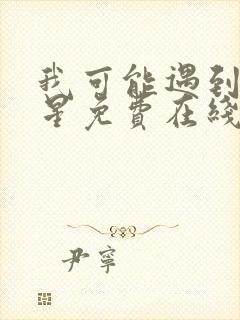 我可能遇到
星免费在綫
尹寧